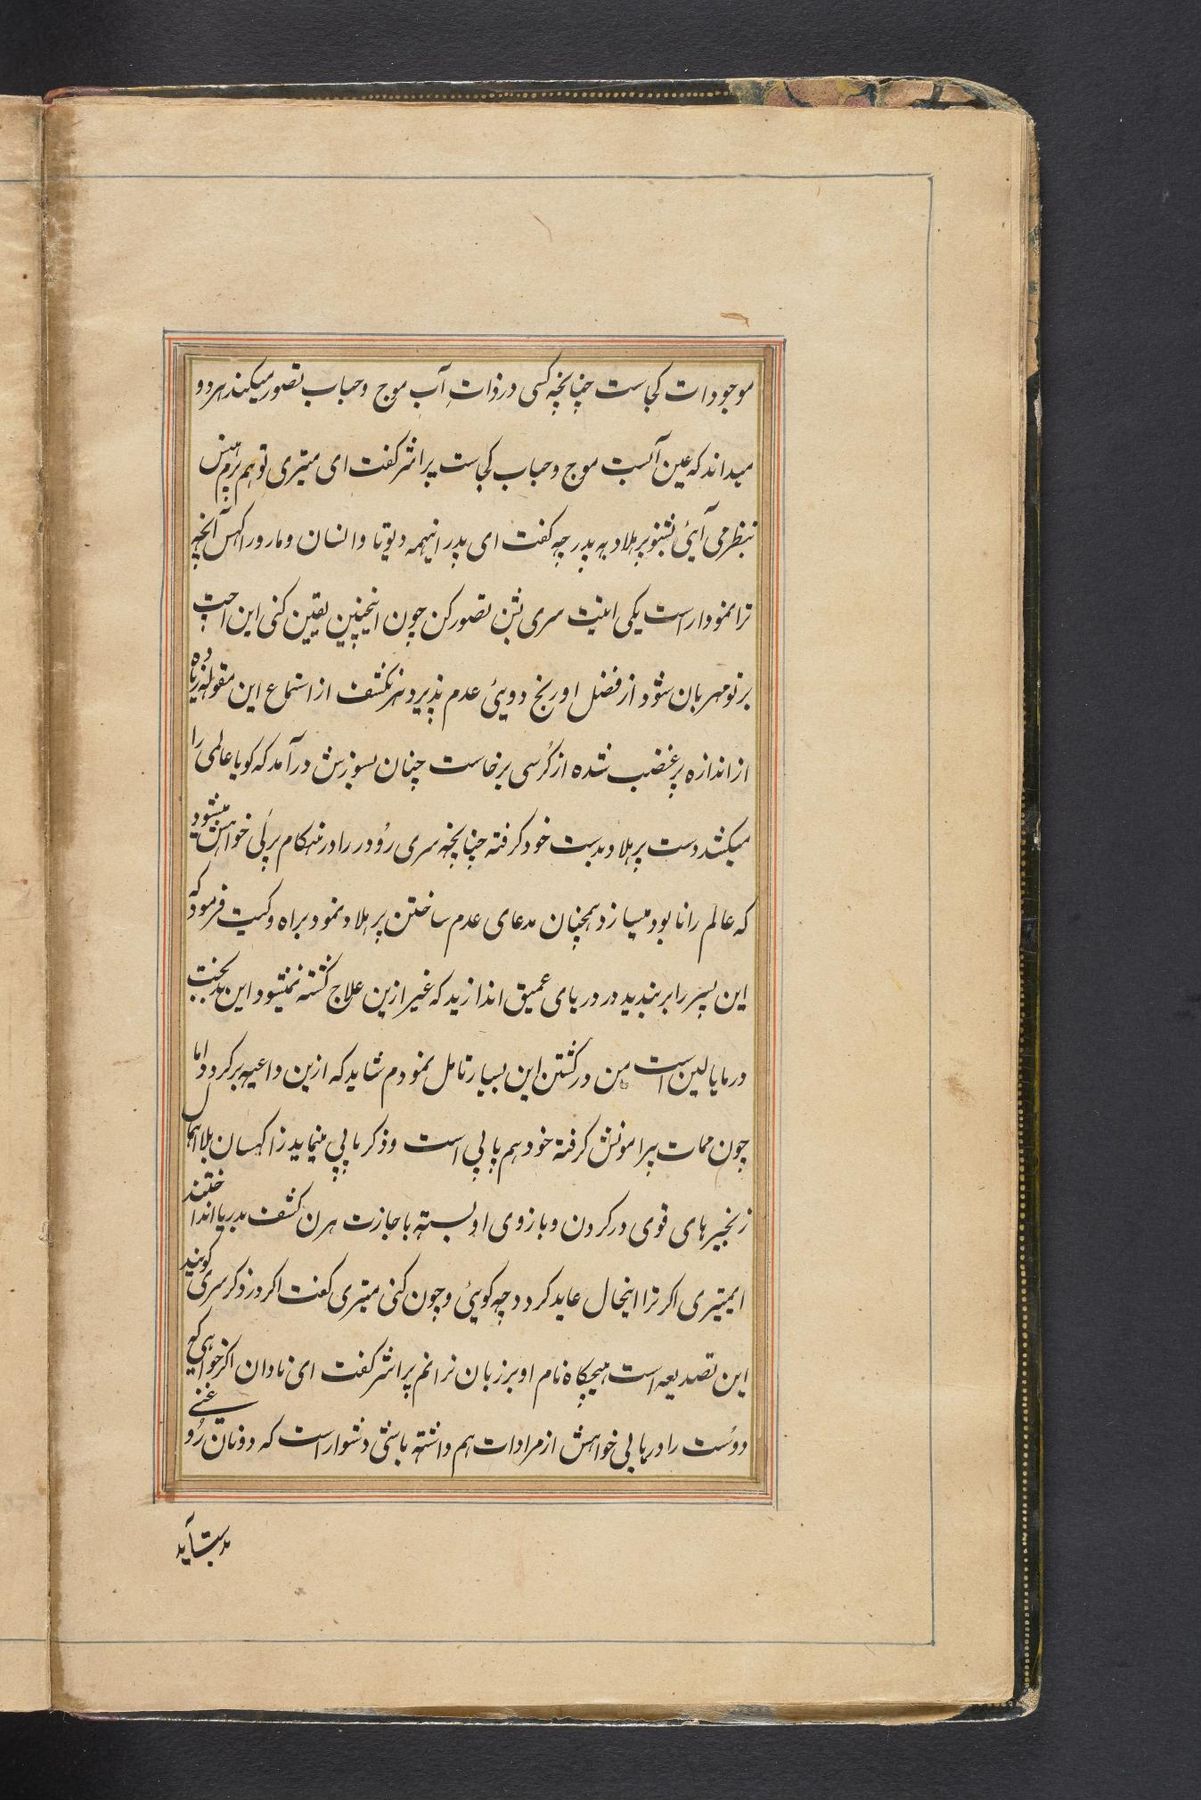 موجودات کجاست چنانچه کسی در ذات آب موج و حباب تصور میکند هر دو
میداند که عین آبست موج و حباب کجاست پراشر کفت ای میتری تو هم برم
بنظر می آیی بشنو پرهلاد به پدر چه کفت ای پدر اینهمه دیوتا و انسان و مار و راکهس آنچه
ترا نمودار است یکی اینست سری بشن تصور کن چون اینچنین یقین کنی این
بر تو مهربان شود از فضل او رنج دویی عدم پذیرد هرنکشف از استماع این مقوله زیاده
از اندازه پر غضب شده از کرسی برخاست چنان بسوزش درآمد که کویا عالمی را
میکشد دست پرهلاد بدست خود کرفته چنانچه سری رودر را در هنکام پرلی خواهش میشود
که عالم را نابود میسازد همچنان مدعای عدم ساختن پرهلاد نمود براه و کیت فرمود که
این پسر را بر بندید در دریای عمیق اندازید که غیر ازین علاج کشته نمیشود این بدبخت
در مایا لین است من در کشتن این بسیار تامل نمودم شاید که ازین داعیه بر کردد اما
چون ممات پیرامونش کرفته خود هم پاپی است و ذکر پاپی مینماید راکهسان بلا اهمال
زنجیرهای قوی در کردن و بازوی او بسته باجازت هرن کشف بدریا انداختند
ای میتری اکر ترا اینحال عاید کردد چه کویی و چون کنی میتری کفت اکر در ذکر سری کوبند
این تصدیعه است هیچکاه نام او بر زبان نرانم پراشر کفت ای نادان اکر خواهی که
دوست را دریابی خواهش از مرادات هم داشته باشی دشوار است که دونان رو غنی
بدست آید